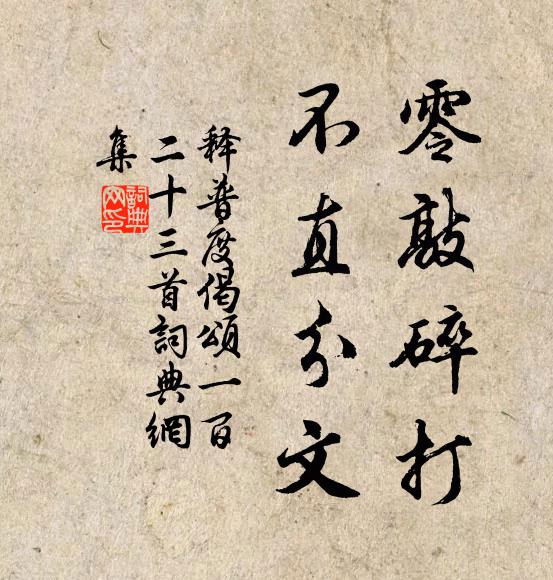 零敲碎打
不直分文
释普度偈頌一百
二十三首詞典網
集
詞典网印